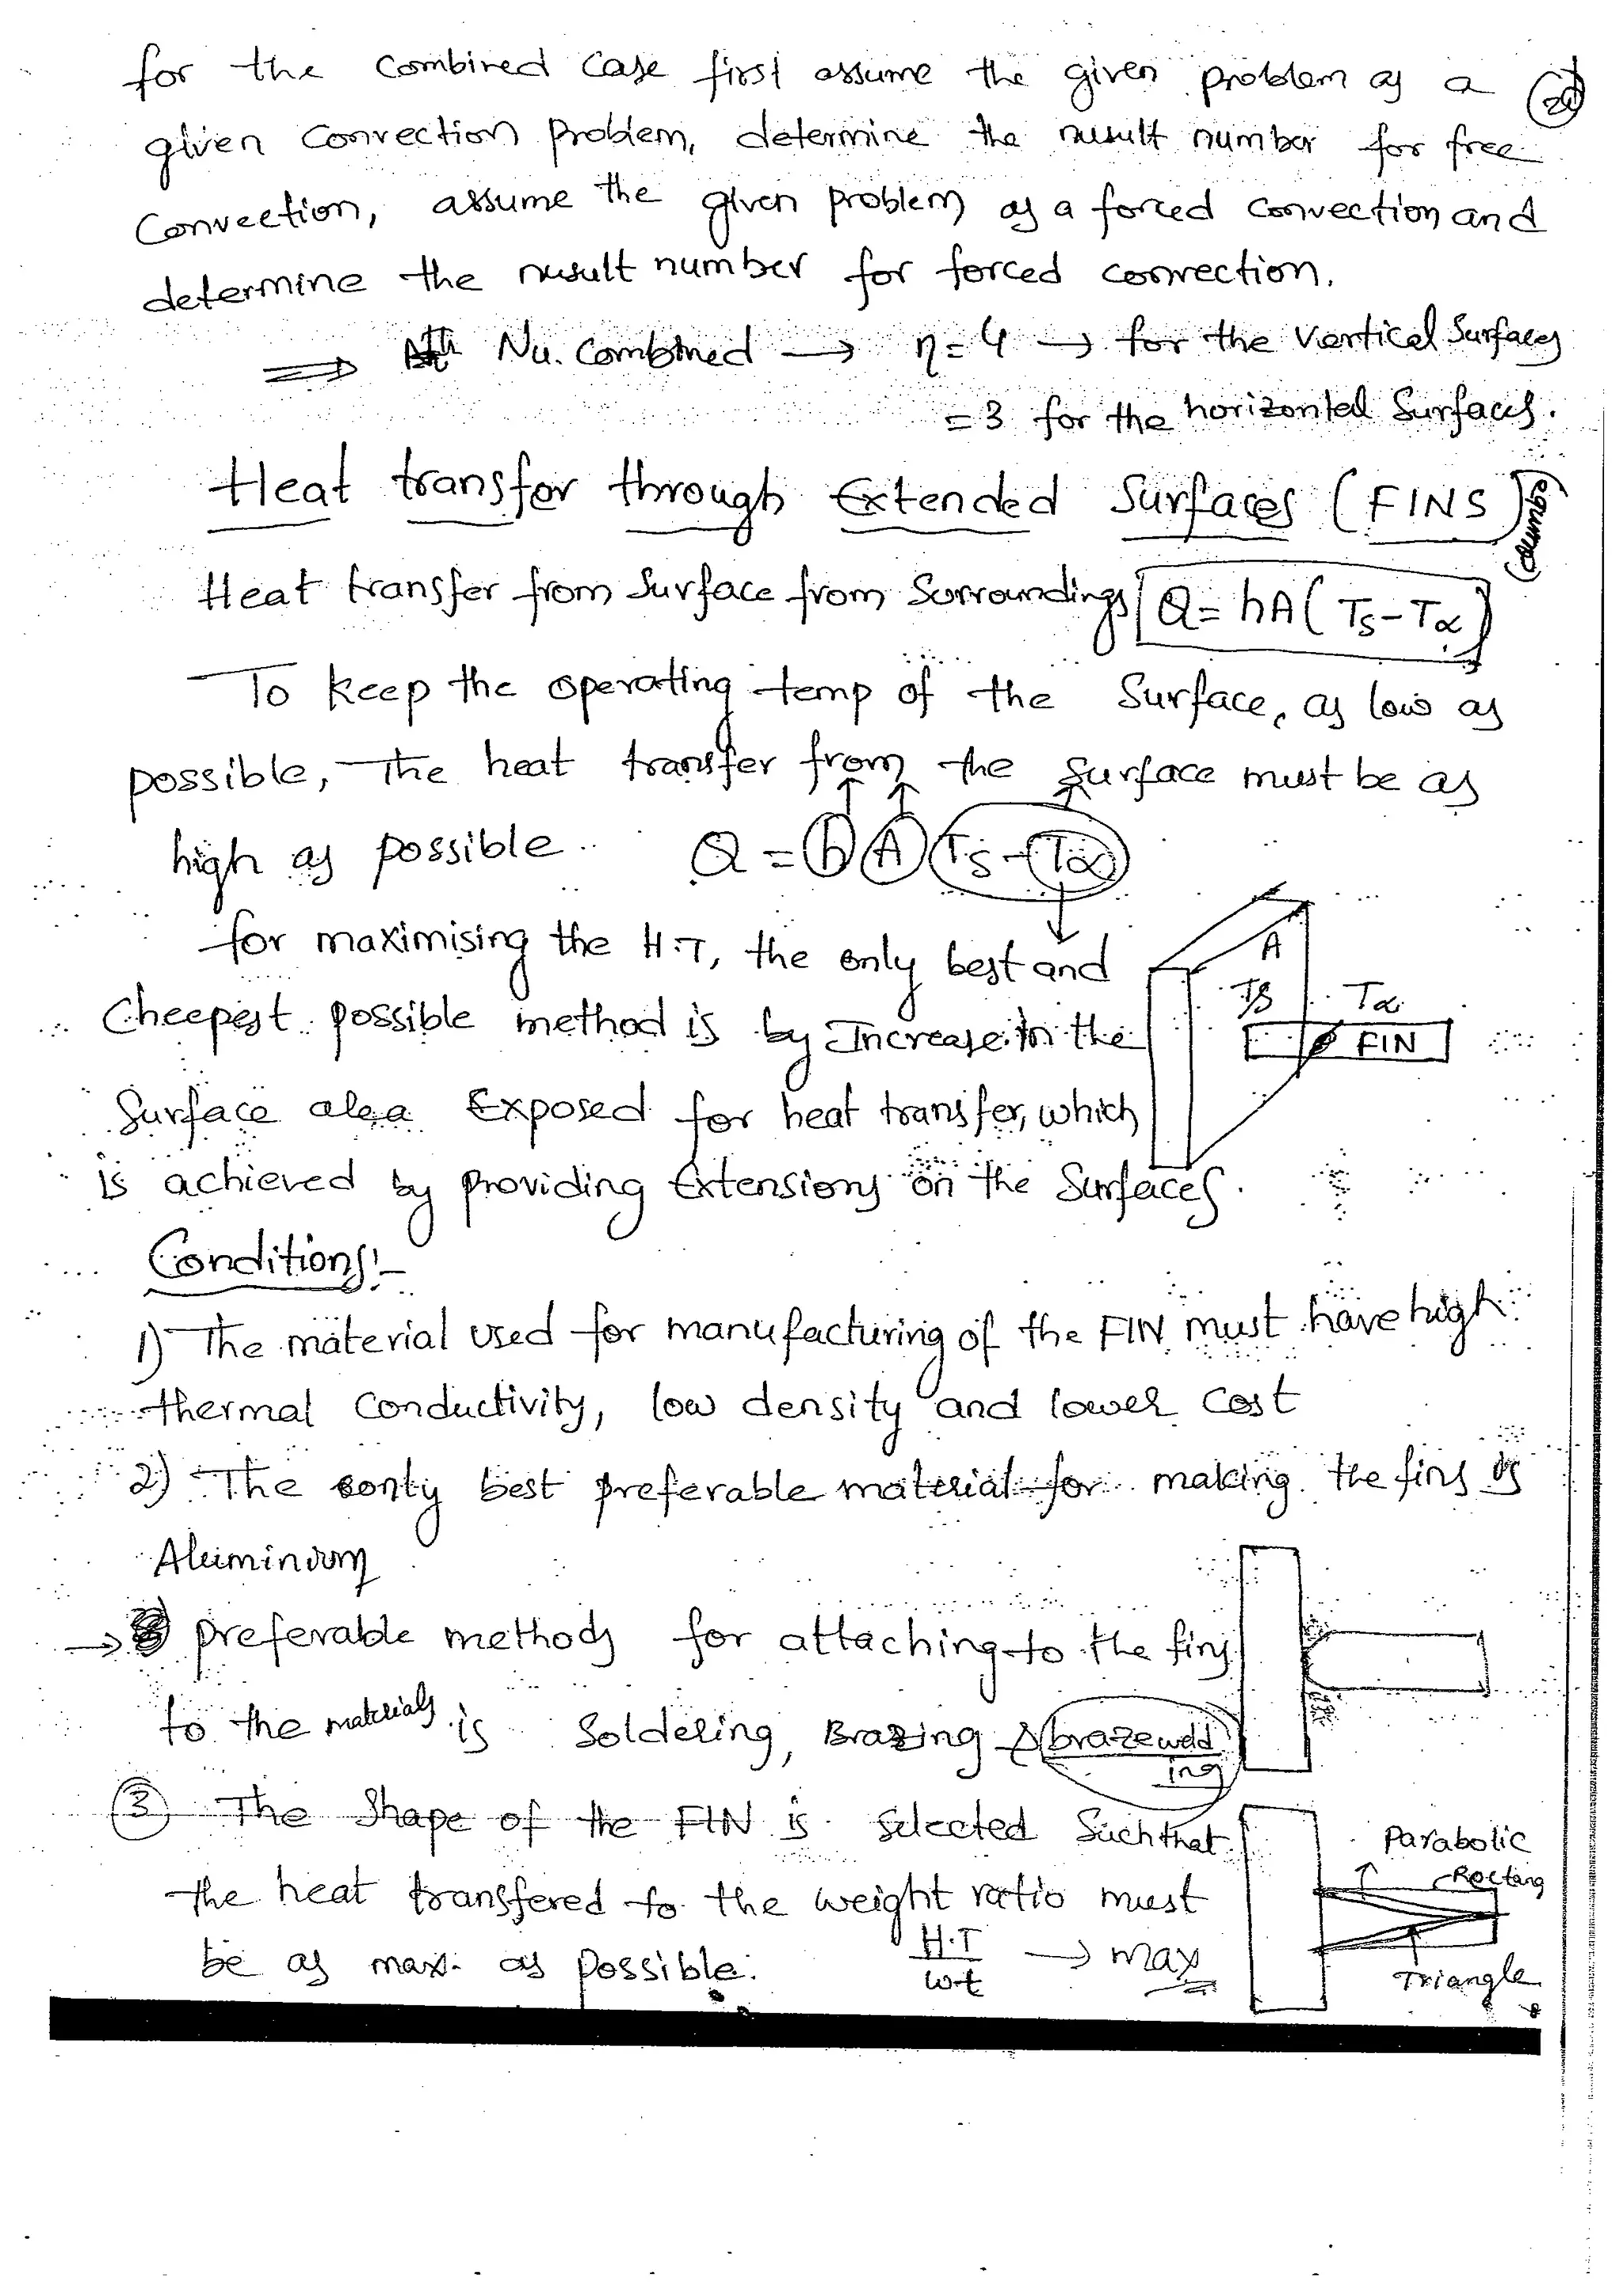 for the combined case first assume the given problem as a
given convection problem, determine the nusult number for free
convection, assume the given problem as a forced convection and
determine the nusult number for forced convection.
⇒ Nu. Combined → η = 4 → for the vertical surfaces
= 3 for the horizontal surfaces.
Heat transfer through Extended Surfaces (FINS)
Heat transfer from surface from surroundings Q = hA(Ts - Tα)
To keep the operating temp of the surface, as low as
possible, The heat transfer from the surface must be as
high as possible. Q = h A (Ts - Tα)
for maximising the H.T, the only best and
cheepest possible method is by Increase in the
surface area Exposed for heat transfer, which
is achieved by providing Extensions on the surfaces.
A
Ts Tα
FIN
Conditions:-
1) The material used for manufacturing of the FIN must have high
thermal conductivity, low density and lower cost
2) The only best preferable material for making the fins is
Aluminium
→ preferable methods for attaching to the fins
to the materials is Soldering, Brazing & braze welding
③ The shape of the FIN is selected such that
the heat transfered to the weight ratio must
be as max. as possible. H.T/wt → max
Parabolic
Rectang
Triangle